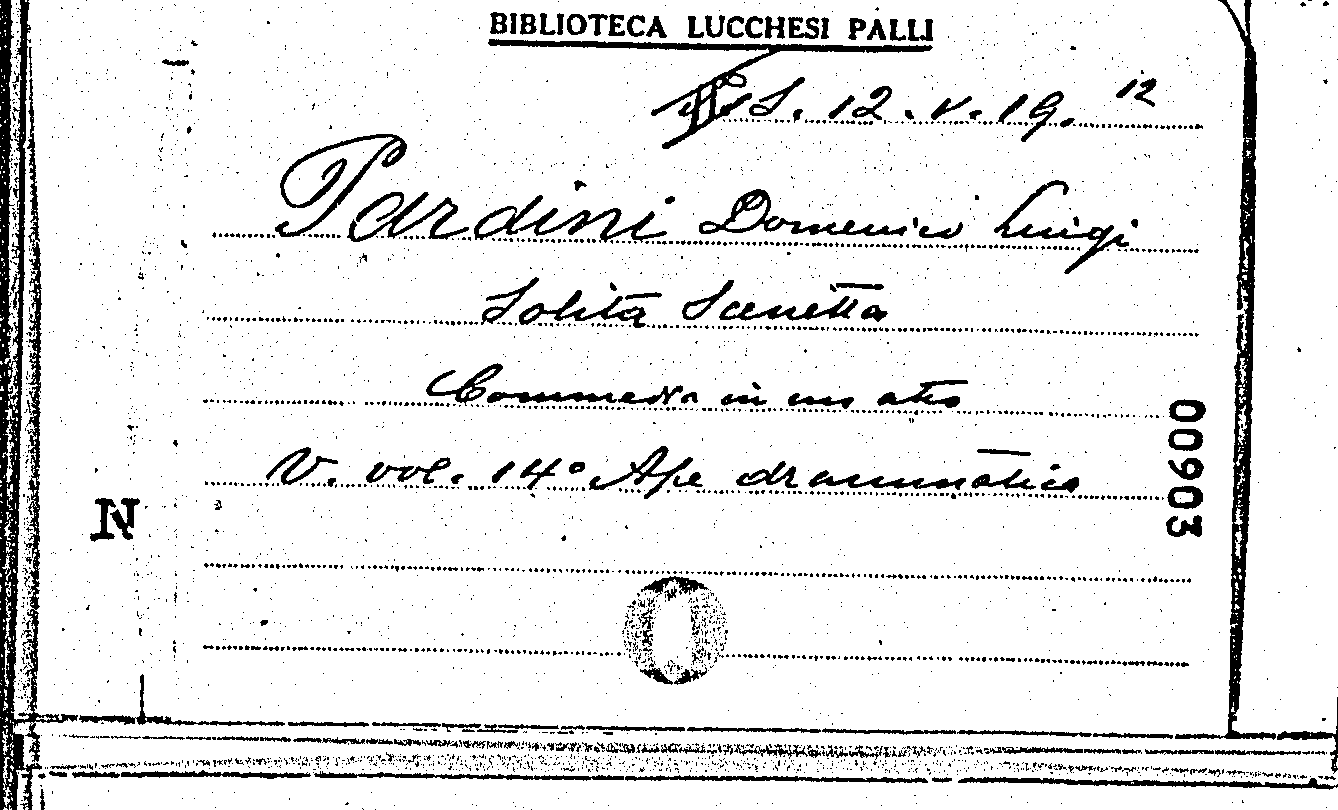 BIBLIOTECA LUCCHESI PALLI
S. 12. V. 19. 12
Pardini Domenico Luigi
Solita Scenetta
Commedia in un atto
V. vol. 14° Ape drammatica
00903
N